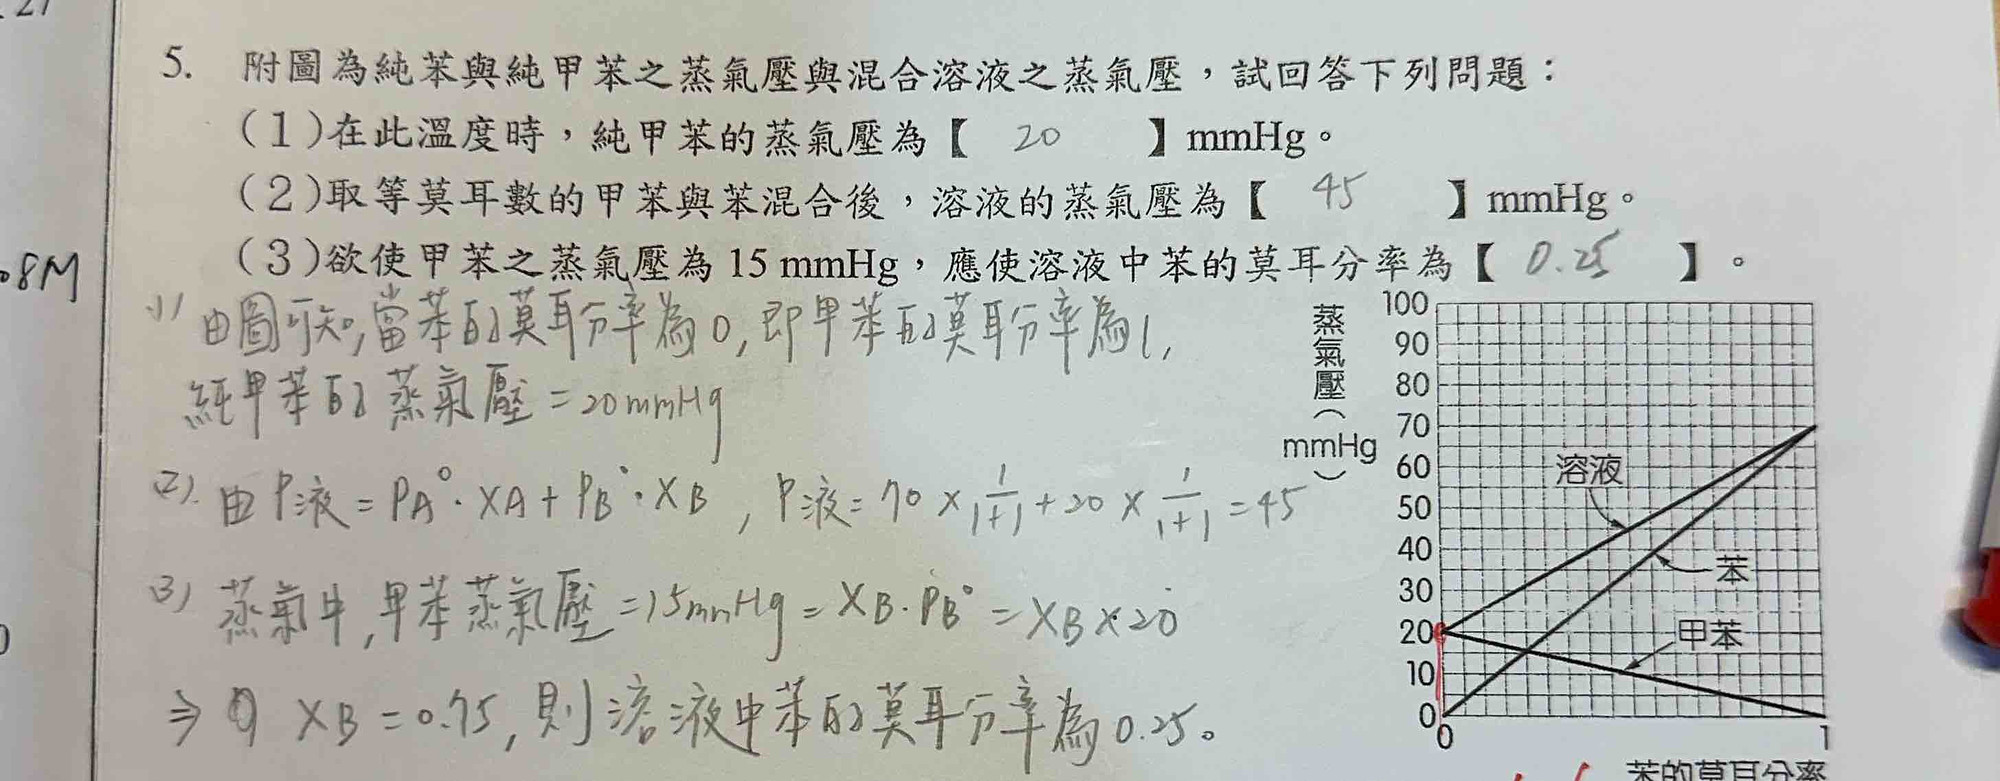 5. 附圖為純苯與純甲苯之蒸氣壓與混合溶液之蒸氣壓，試回答下列問題：
(1)在此溫度時，純甲苯的蒸氣壓為【 20 】mmHg。
(2)取等莫耳數的甲苯與苯混合後，溶液的蒸氣壓為【 45 】mmHg。
(3)欲使甲苯之蒸氣壓為 15 mmHg，應使溶液中苯的莫耳分率為【 0.25 】。
8M
(1) 由圖可知,當苯的莫耳分率為0,即甲苯的莫耳分率為1,
純甲苯的蒸氣壓=20mmHg
(2). 由P液=PA°·XA+PB°·XB , P液=70×1/1+1+20×1/1+1=45
(3) 蒸氣中,甲苯蒸氣壓=15mmHg=XB·PB°=XB×20
⇒ XB=0.75,則溶液中苯的莫耳分率為0.25。
蒸氣壓(mmHg)
100
90
80
70
60
50
40
30
20
10
0
溶液
苯
甲苯
0 1
苯的莫耳分率